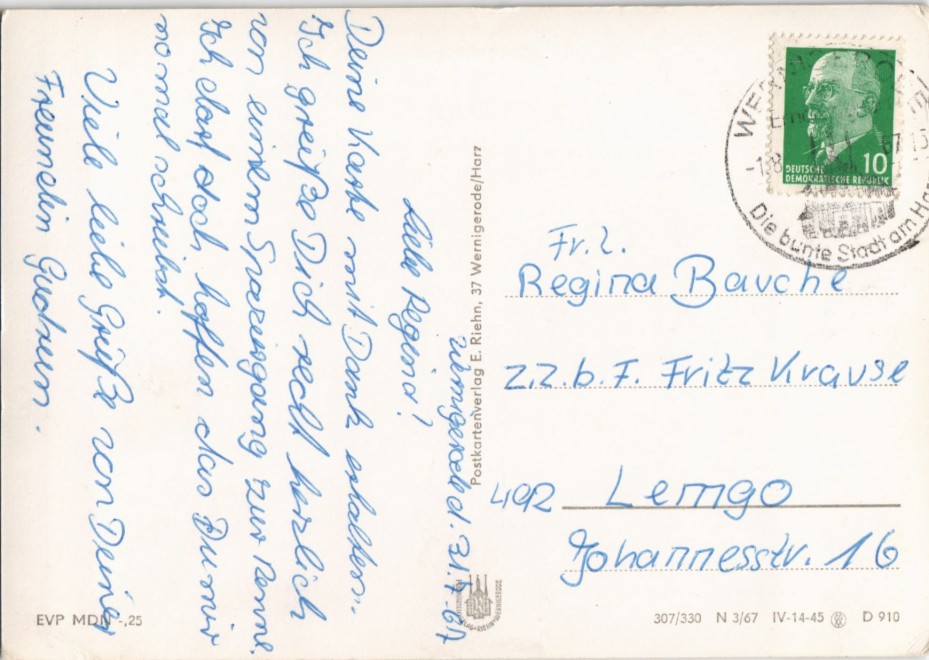 Wernigerode d. 31.7.67
Liebe Regina!
Deine Karte mit Dank erhalten.
Ich grüße Dich recht herzlich
von einem Spaziergang zur Renne.
Ich darf doch hoffen das Du mir
nomal schreibst.
Viele liebe Grüße von Deiner
Freundin Gudrun.
EVP MDN -,25
Postkartenverlag E. Riehn, 37 Wernigerode/Harz
DEUTSCHE
DEMOKRATISCHE REPUBLIK
10
Die bunte Stadt am Harz
Frl.
Regina Bauche
z.Z. b. F. Fritz Krause
492 Lemgo
Johannesstr. 16
307/330 N 3/67 IV-14-45 D 910